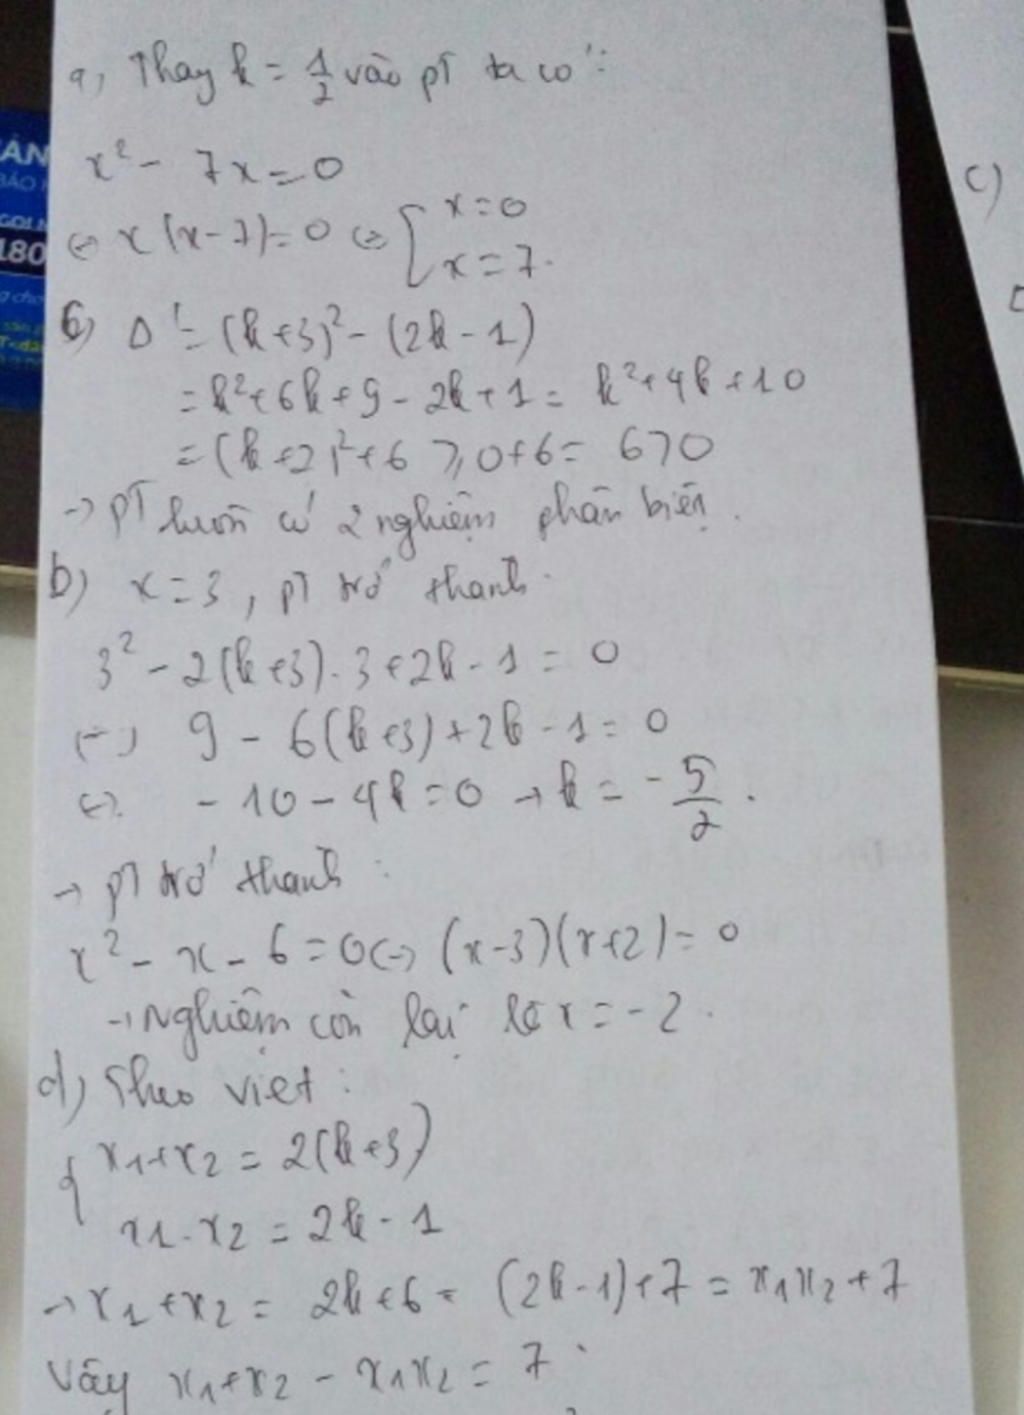 a, Thay k = 1/2 vào pT ta có:
x² - 7x = 0
<=> x(x-7) = 0 <=> [ x = 0
x = 7.
b) Δ' = (k+3)² - (2k - 1)
= k² + 6k + 9 - 2k + 1 = k² + 4k + 10
= (k+2)² + 6 ≥ 0 + 6 = 6 > 0
→ pT luôn có 2 nghiệm phân biệt.
b) x = 3, pT trở thành.
3² - 2(k+3).3 + 2k - 1 = 0
<=> 9 - 6(k+3) + 2k - 1 = 0
<=> - 10 - 4k = 0 → k = - 5/2.
→ pT trở thành :
x² - x - 6 = 0 <=> (x-3)(x+2) = 0
→ Nghiệm còn lại là x = - 2.
d) Theo viet :
{ x₁ + x₂ = 2(k+3)
x₁.x₂ = 2k - 1
→ x₁ + x₂ = 2k + 6 = (2k-1) + 7 = x₁x₂ + 7
Vậy x₁ + x₂ - x₁x₂ = 7.
C)
ÁN
BẢO
GOLD
180